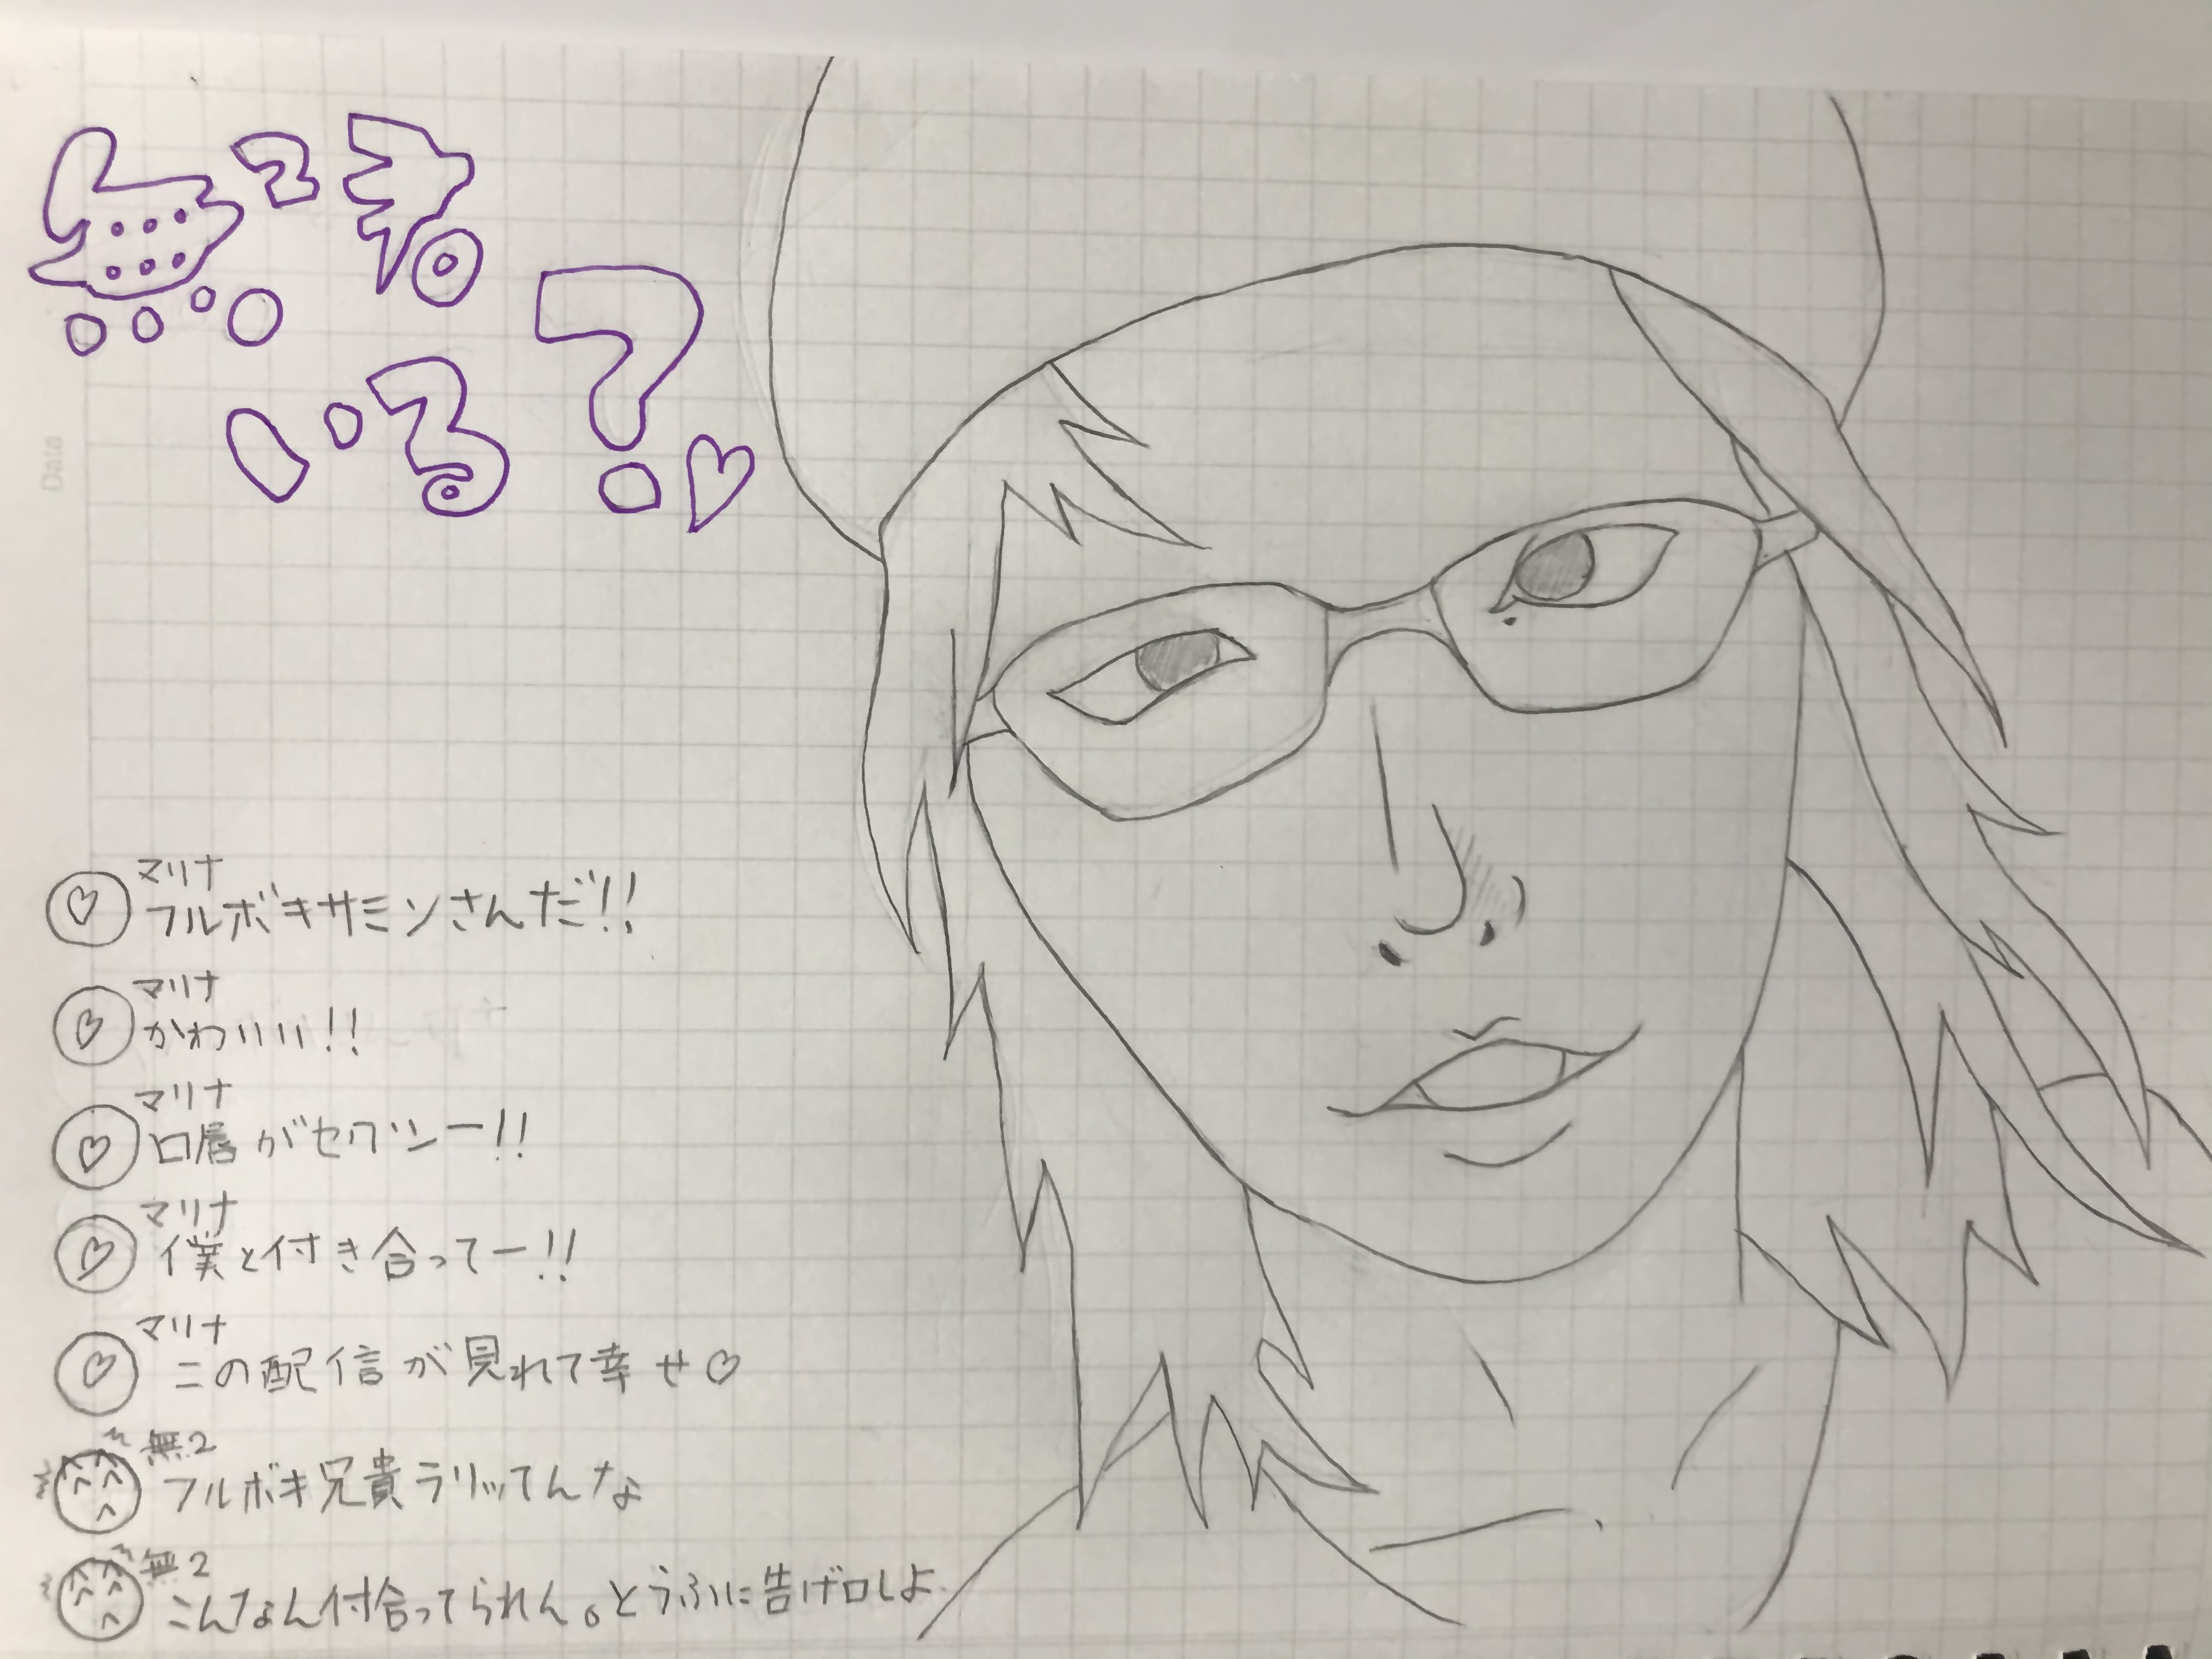 無2君
いる?♡
Data
マリナ
フルボキサミンさんだ!!
マリナ
かわいいい!!
マリナ
口唇がセクシー!!
マリナ
僕と付き合ってー!!
マリナ
この配信が見れて幸せ♡
無2
フルボキ兄貴ラリッてんな
無2
こんなん付合ってられん。とうふに告げ口しよ